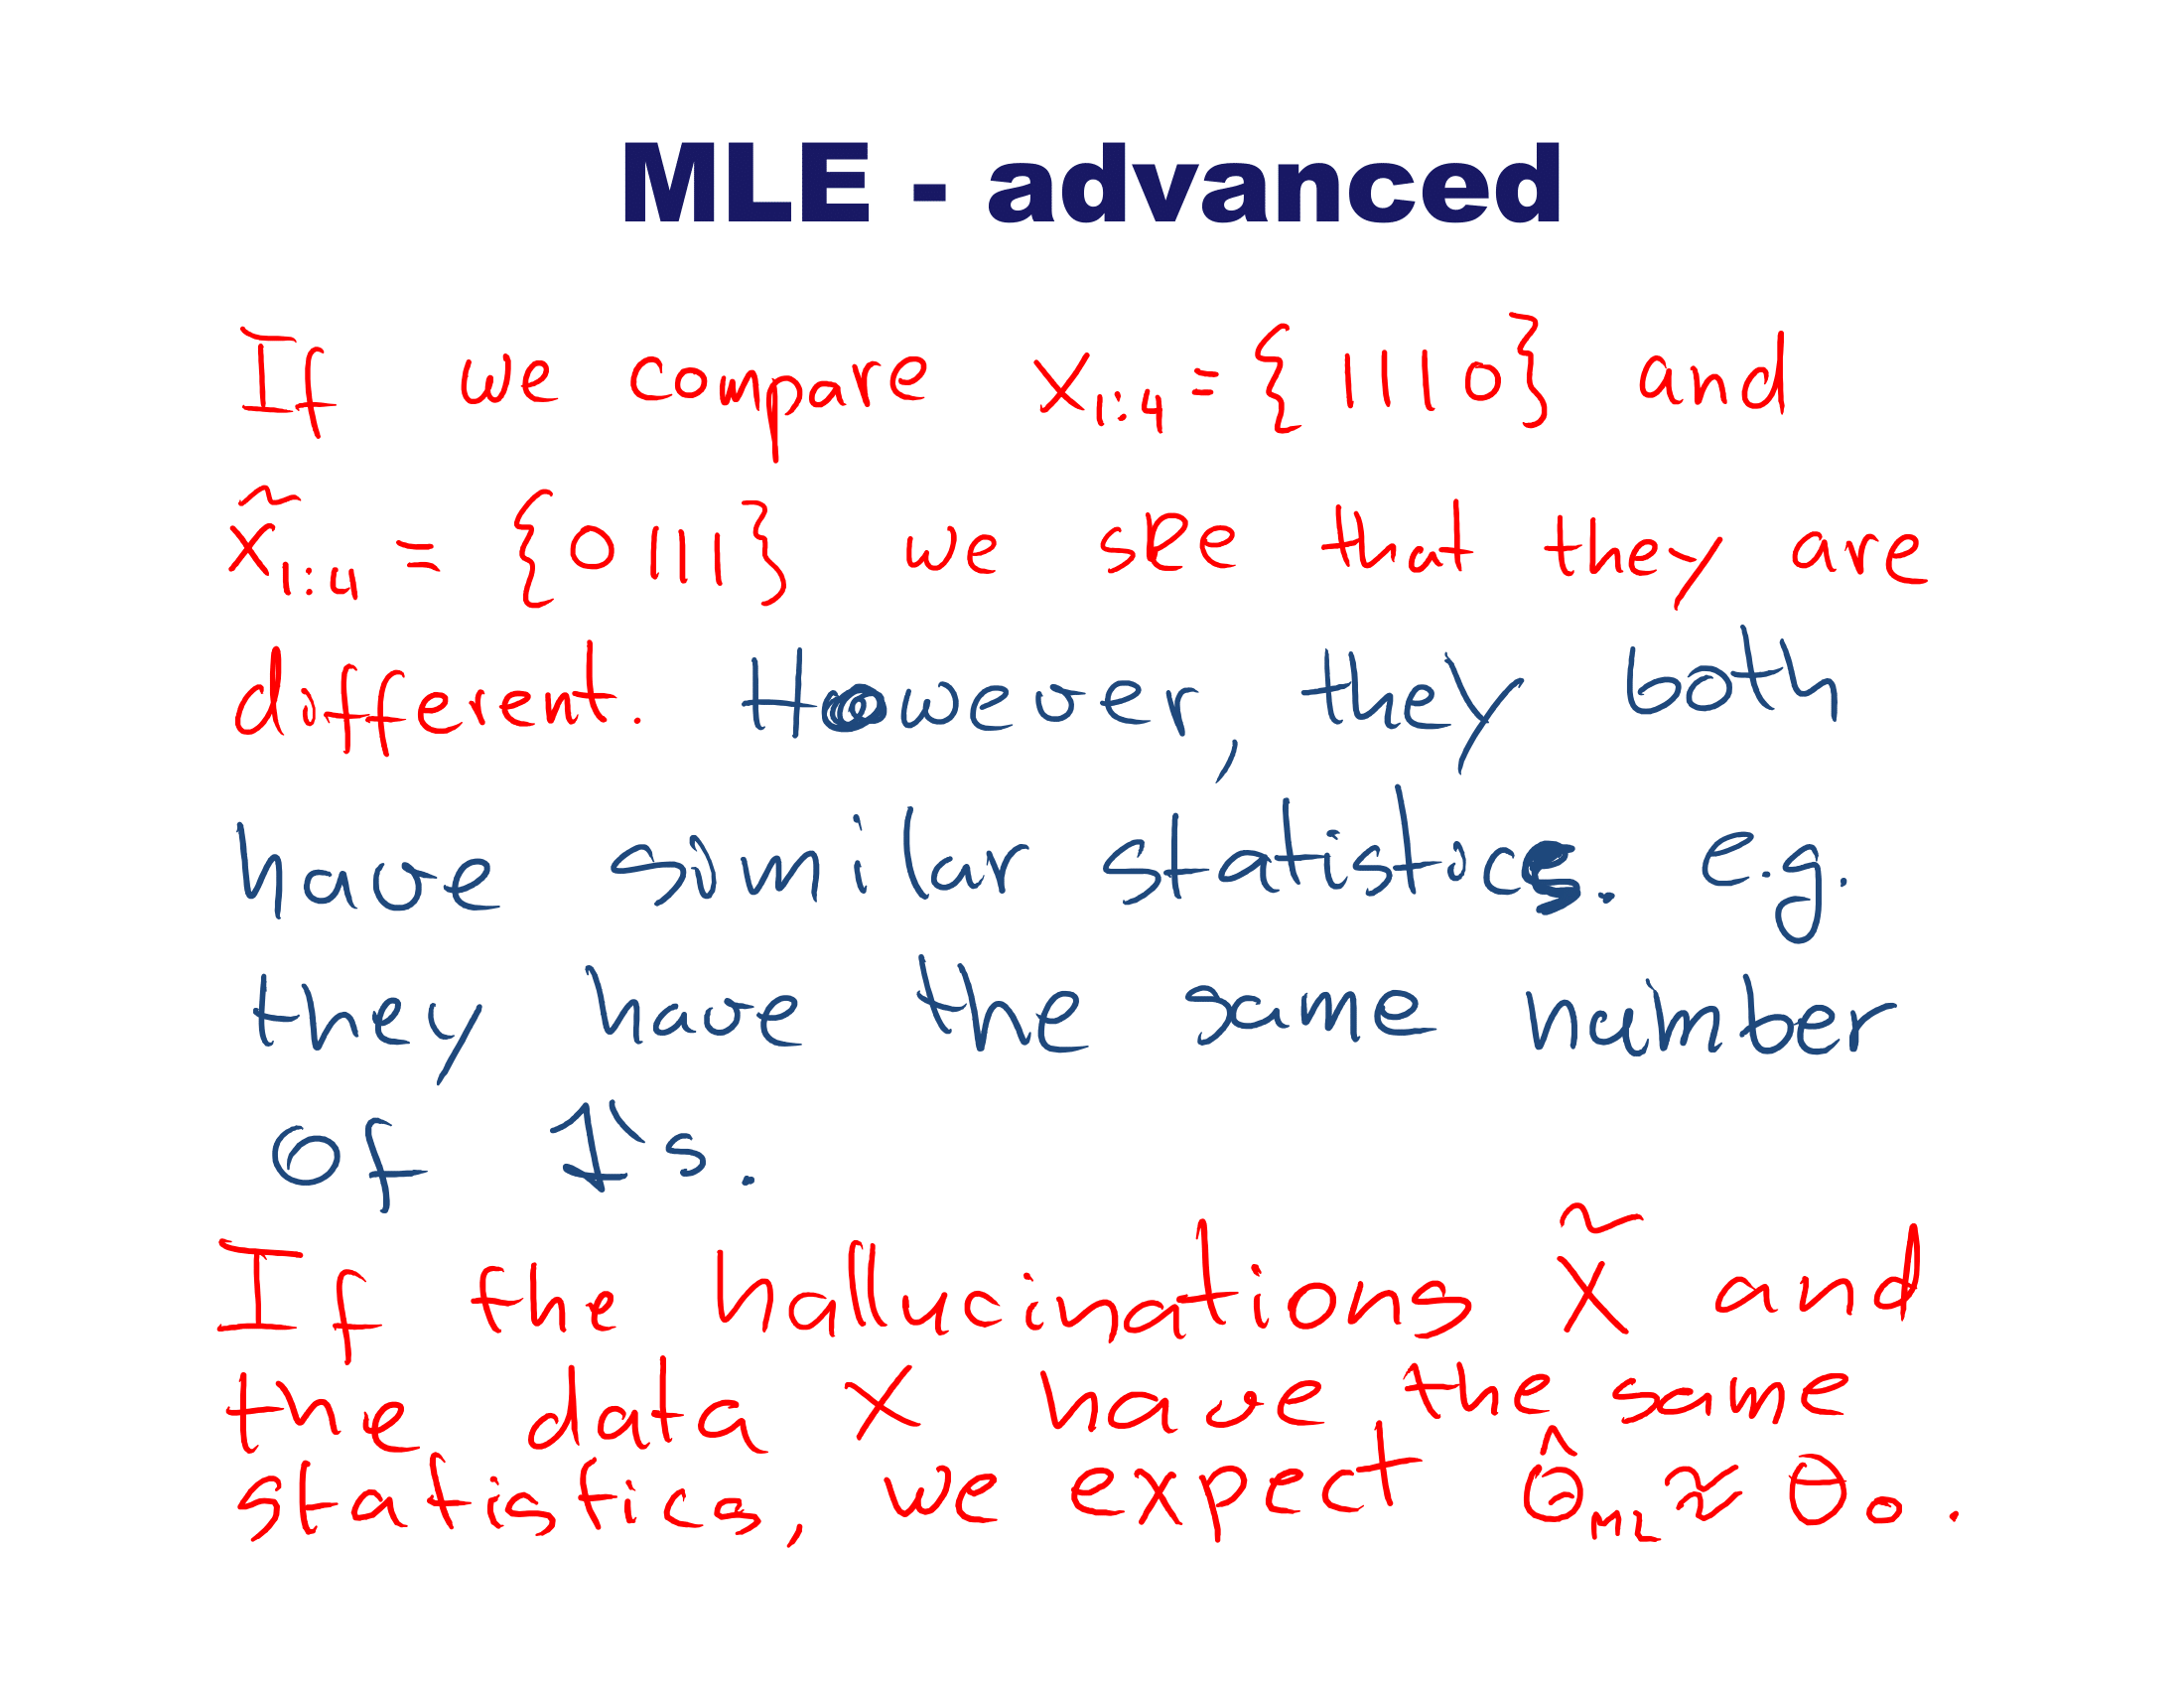 MLE - advanced
If we compare x₁:₄ = {1110} and
x̃₁:₄ = {0111} we see that they are
different. However, they both
have similar statistics. e.g.
they have the same number
of 1's.
If the hallucinations x̃ and
the data x have the same
statistics, we expect θ̂ₘₗ ≈ θ₀.